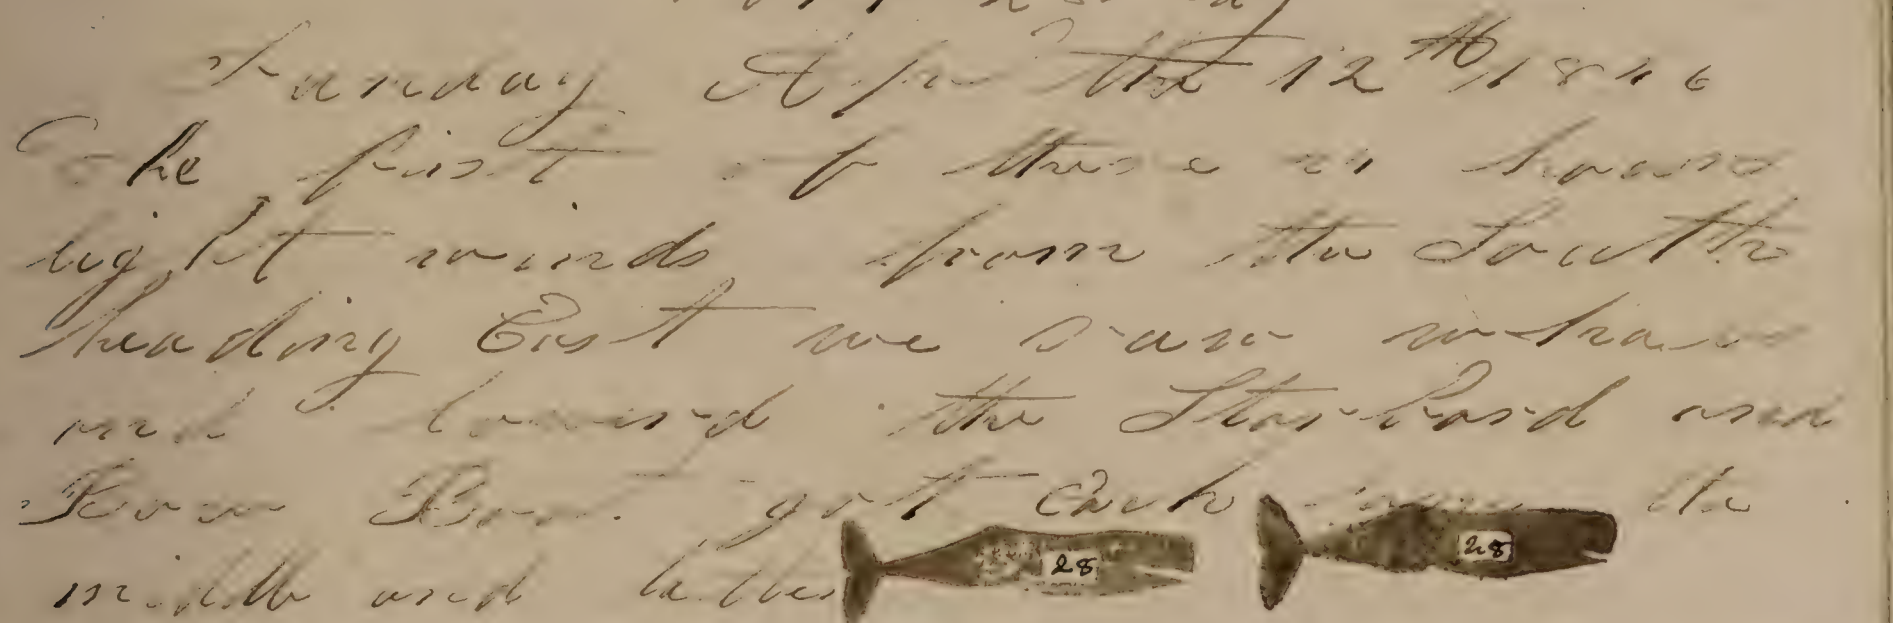 Sunday Apr the 12th 1846
The first of these 24 hours
light winds from the South
heading East we saw whales
and lowerd the Starbord and
Bow Boat got Each the
middle and latter
28 28